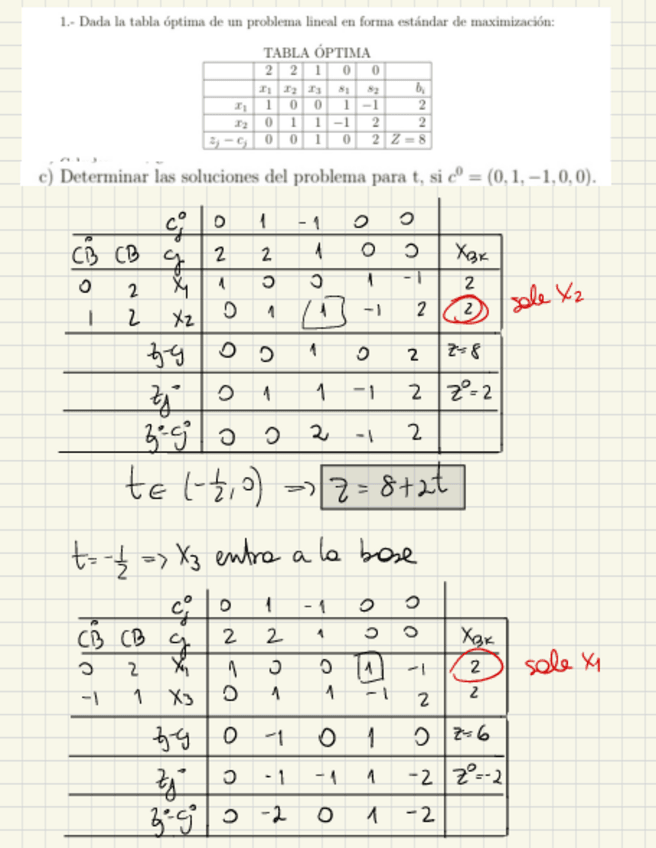 1.- Dada la tabla óptima de un problema lineal en forma estándar de maximización:
TABLA ÓPTIMA
2 2 1 0 0
x₁ x₂ x₃ s₁ s₂ bᵢ
x₁ 1 0 0 1 −1 2
x₂ 0 1 1 −1 2 2
zⱼ − cⱼ 0 0 1 0 2 Z = 8
c) Determinar las soluciones del problema para t, si c⁰ = (0, 1, −1, 0, 0).
cⱼ° 0 1 -1 0 0
CB° CB cⱼ 2 2 1 0 0 XBK
0 2 X₁ 1 0 0 1 -1 2
1 2 X₂ 0 1 1 -1 2 2 sale X₂
zⱼ-cⱼ 0 0 1 0 2 z=8
zⱼ° 0 1 1 -1 2 Z°=2
zⱼ°-cⱼ° 0 0 2 -1 2
t ∈ (-1/2, 0) => Z = 8+2t
t=-1/2 => X₃ entra a la base
cⱼ° 0 1 -1 0 0
CB° CB cⱼ 2 2 1 0 0 XBK
0 2 X₁ 1 0 0 1 -1 2 sale X₁
-1 1 X₃ 0 1 1 -1 2 2
zⱼ-cⱼ 0 -1 0 1 0 z=6
zⱼ° 0 -1 -1 1 -2 Z°=-2
zⱼ°-cⱼ° 0 -2 0 1 -2